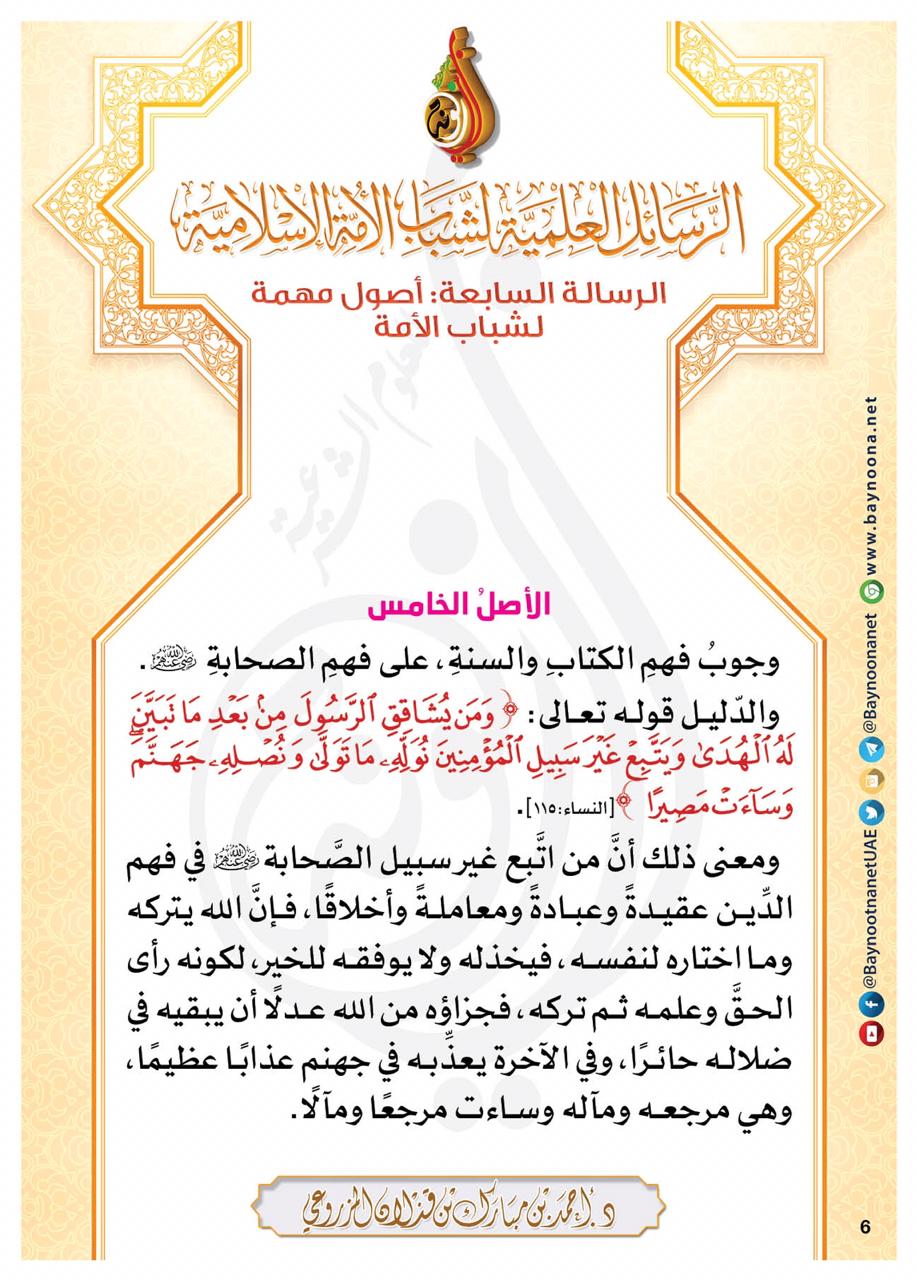 الرسائل العلمية لشباب الأمة الإسلامية
الرسالة السابعة: أصول مهمة
لشباب الأمة
العلوم الشرعية
الأصلُ الخامس
وجوبُ فهمِ الكتابِ والسنةِ، على فهمِ الصحابةِ رضي الله عنهم.
والدّليل قوله تعالى: ﴿وَمَن يُشَاقِقِ ٱلرَّسُولَ مِنۢ بَعۡدِ مَا تَبَيَّنَ
لَهُ ٱلۡهُدَىٰ وَيَتَّبِعۡ غَيۡرَ سَبِيلِ ٱلۡمُؤۡمِنِينَ نُوَلِّهِۦ مَا تَوَلَّىٰ وَنُصۡلِهِۦ جَهَنَّمَۖ
وَسَآءَتۡ مَصِيرًا﴾ [النساء: ١١٥].
ومعنى ذلك أنَّ من اتَّبع غير سبيل الصَّحابة رضي الله عنهم في فهم
الدِّين عقيدةً وعبادةً ومعاملةً وأخلاقًا، فإنَّ الله يتركه
وما اختاره لنفسه، فيخذله ولا يوفقه للخير، لكونه رأى
الحقَّ وعلمه ثم تركه، فجزاؤه من الله عدلًا أن يبقيه في
ضلاله حائرًا، وفي الآخرة يعذِّبه في جهنم عذابًا عظيمًا،
وهي مرجعه ومآله وساءت مرجعًا ومآلًا.
د. أحمد بن مبارك بن قذلان المزروعي
6
@BaynootnanetUAE @Baynoonanet www.baynoona.net